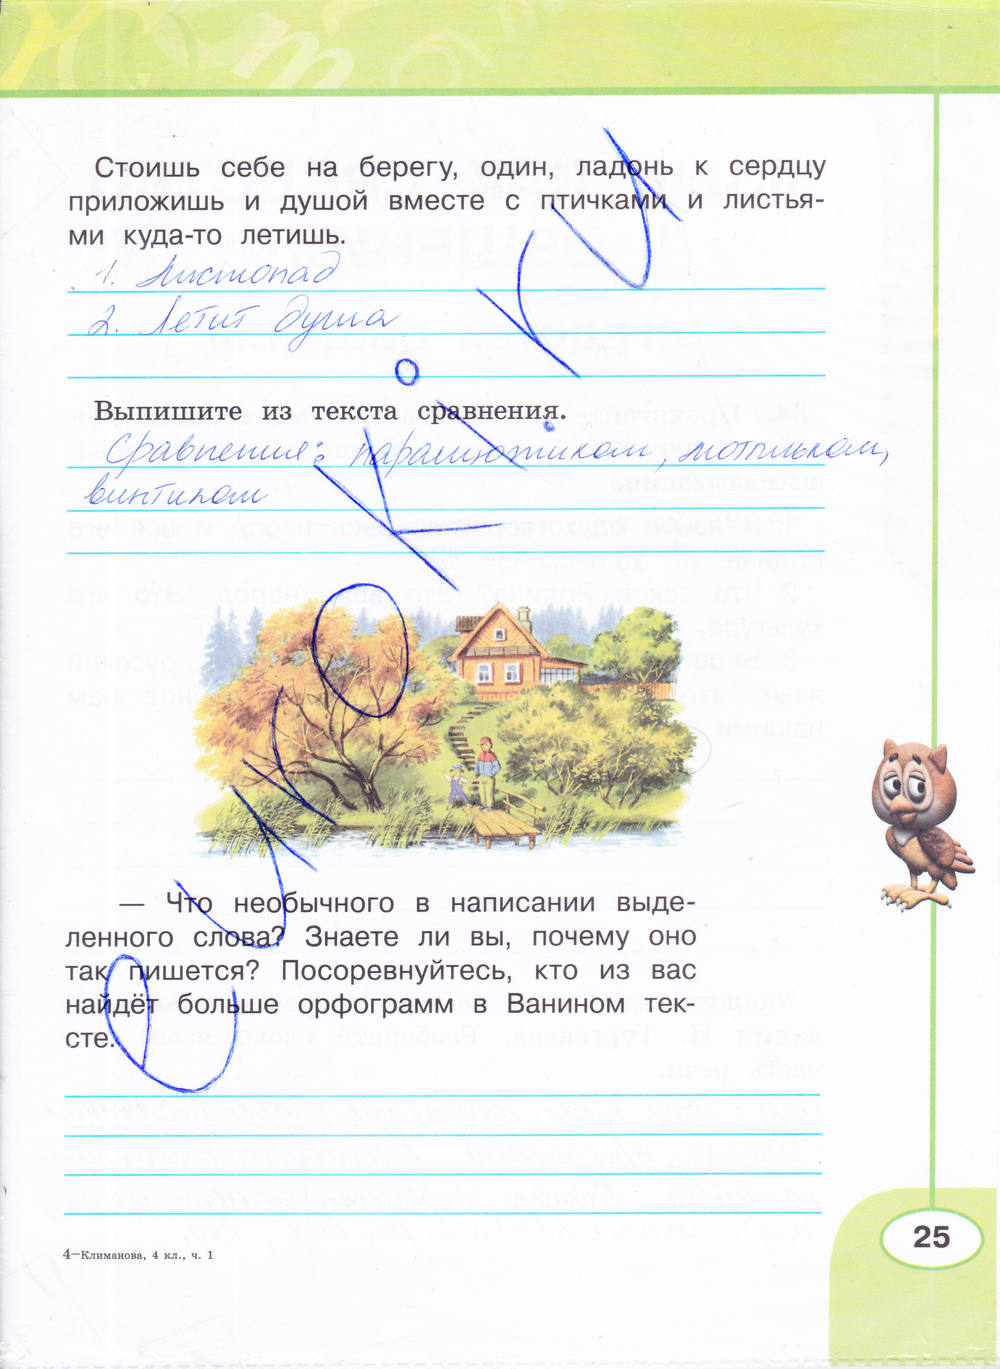 Стоишь себе на берегу, один, ладонь к сердцу
приложишь и душой вместе с птичками и листья-
ми куда-то летишь.
1. Листопад
2. Летит душа
Выпишите из текста сравнения.
Сравнения: парашютиком, мотыльком,
винтиком
— Что необычного в написании выде-
ленного слова? Знаете ли вы, почему оно
так пишется? Посоревнуйтесь, кто из вас
найдёт больше орфограмм в Ванином тек-
сте.
4—Климанова, 4 кл., ч. 1
25